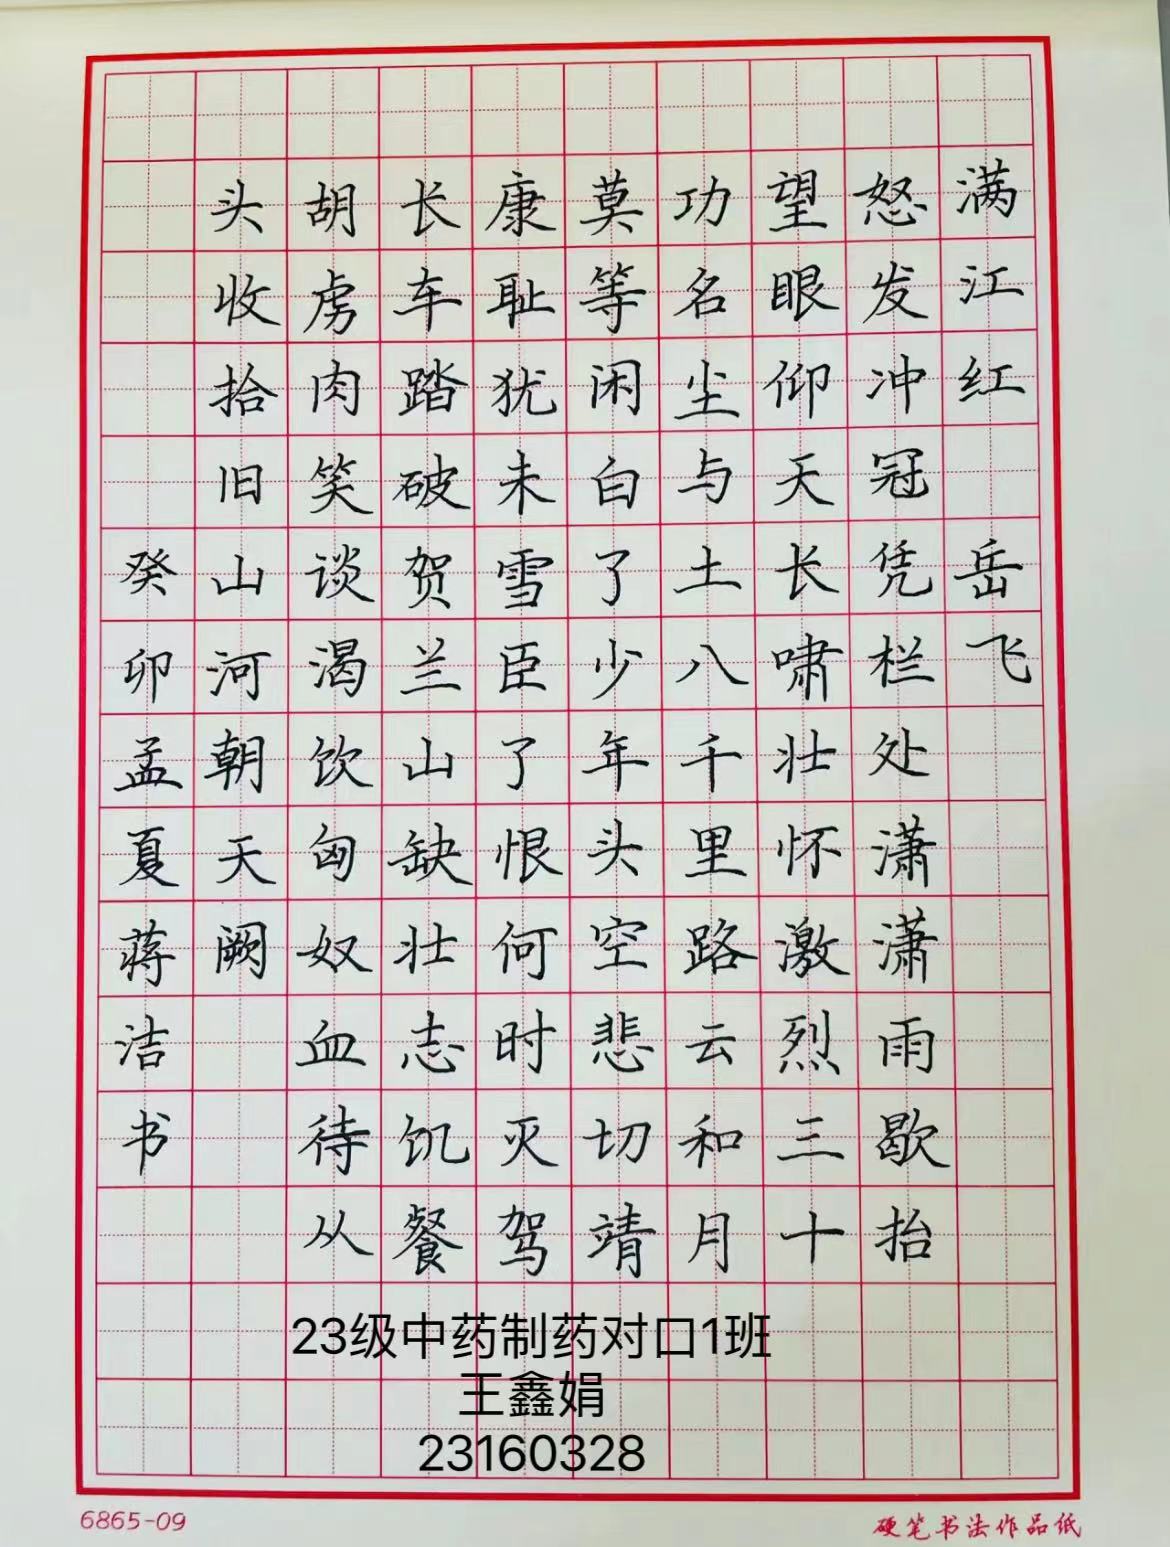 满江红 岳飞
怒发冲冠凭栏处潇潇雨歇抬
望眼仰天长啸壮怀激烈三十
功名尘与土八千里路云和月
莫等闲白了少年头空悲切靖
康耻犹未雪臣了恨何时灭驾
长车踏破贺兰山缺壮志饥餐
胡虏肉笑谈渴饮匈奴血待从
头收拾旧山河朝天阙
癸卯孟夏蒋洁书
23级中药制药对口1班
王鑫娟
23160328
6865-09
硬笔书法作品纸